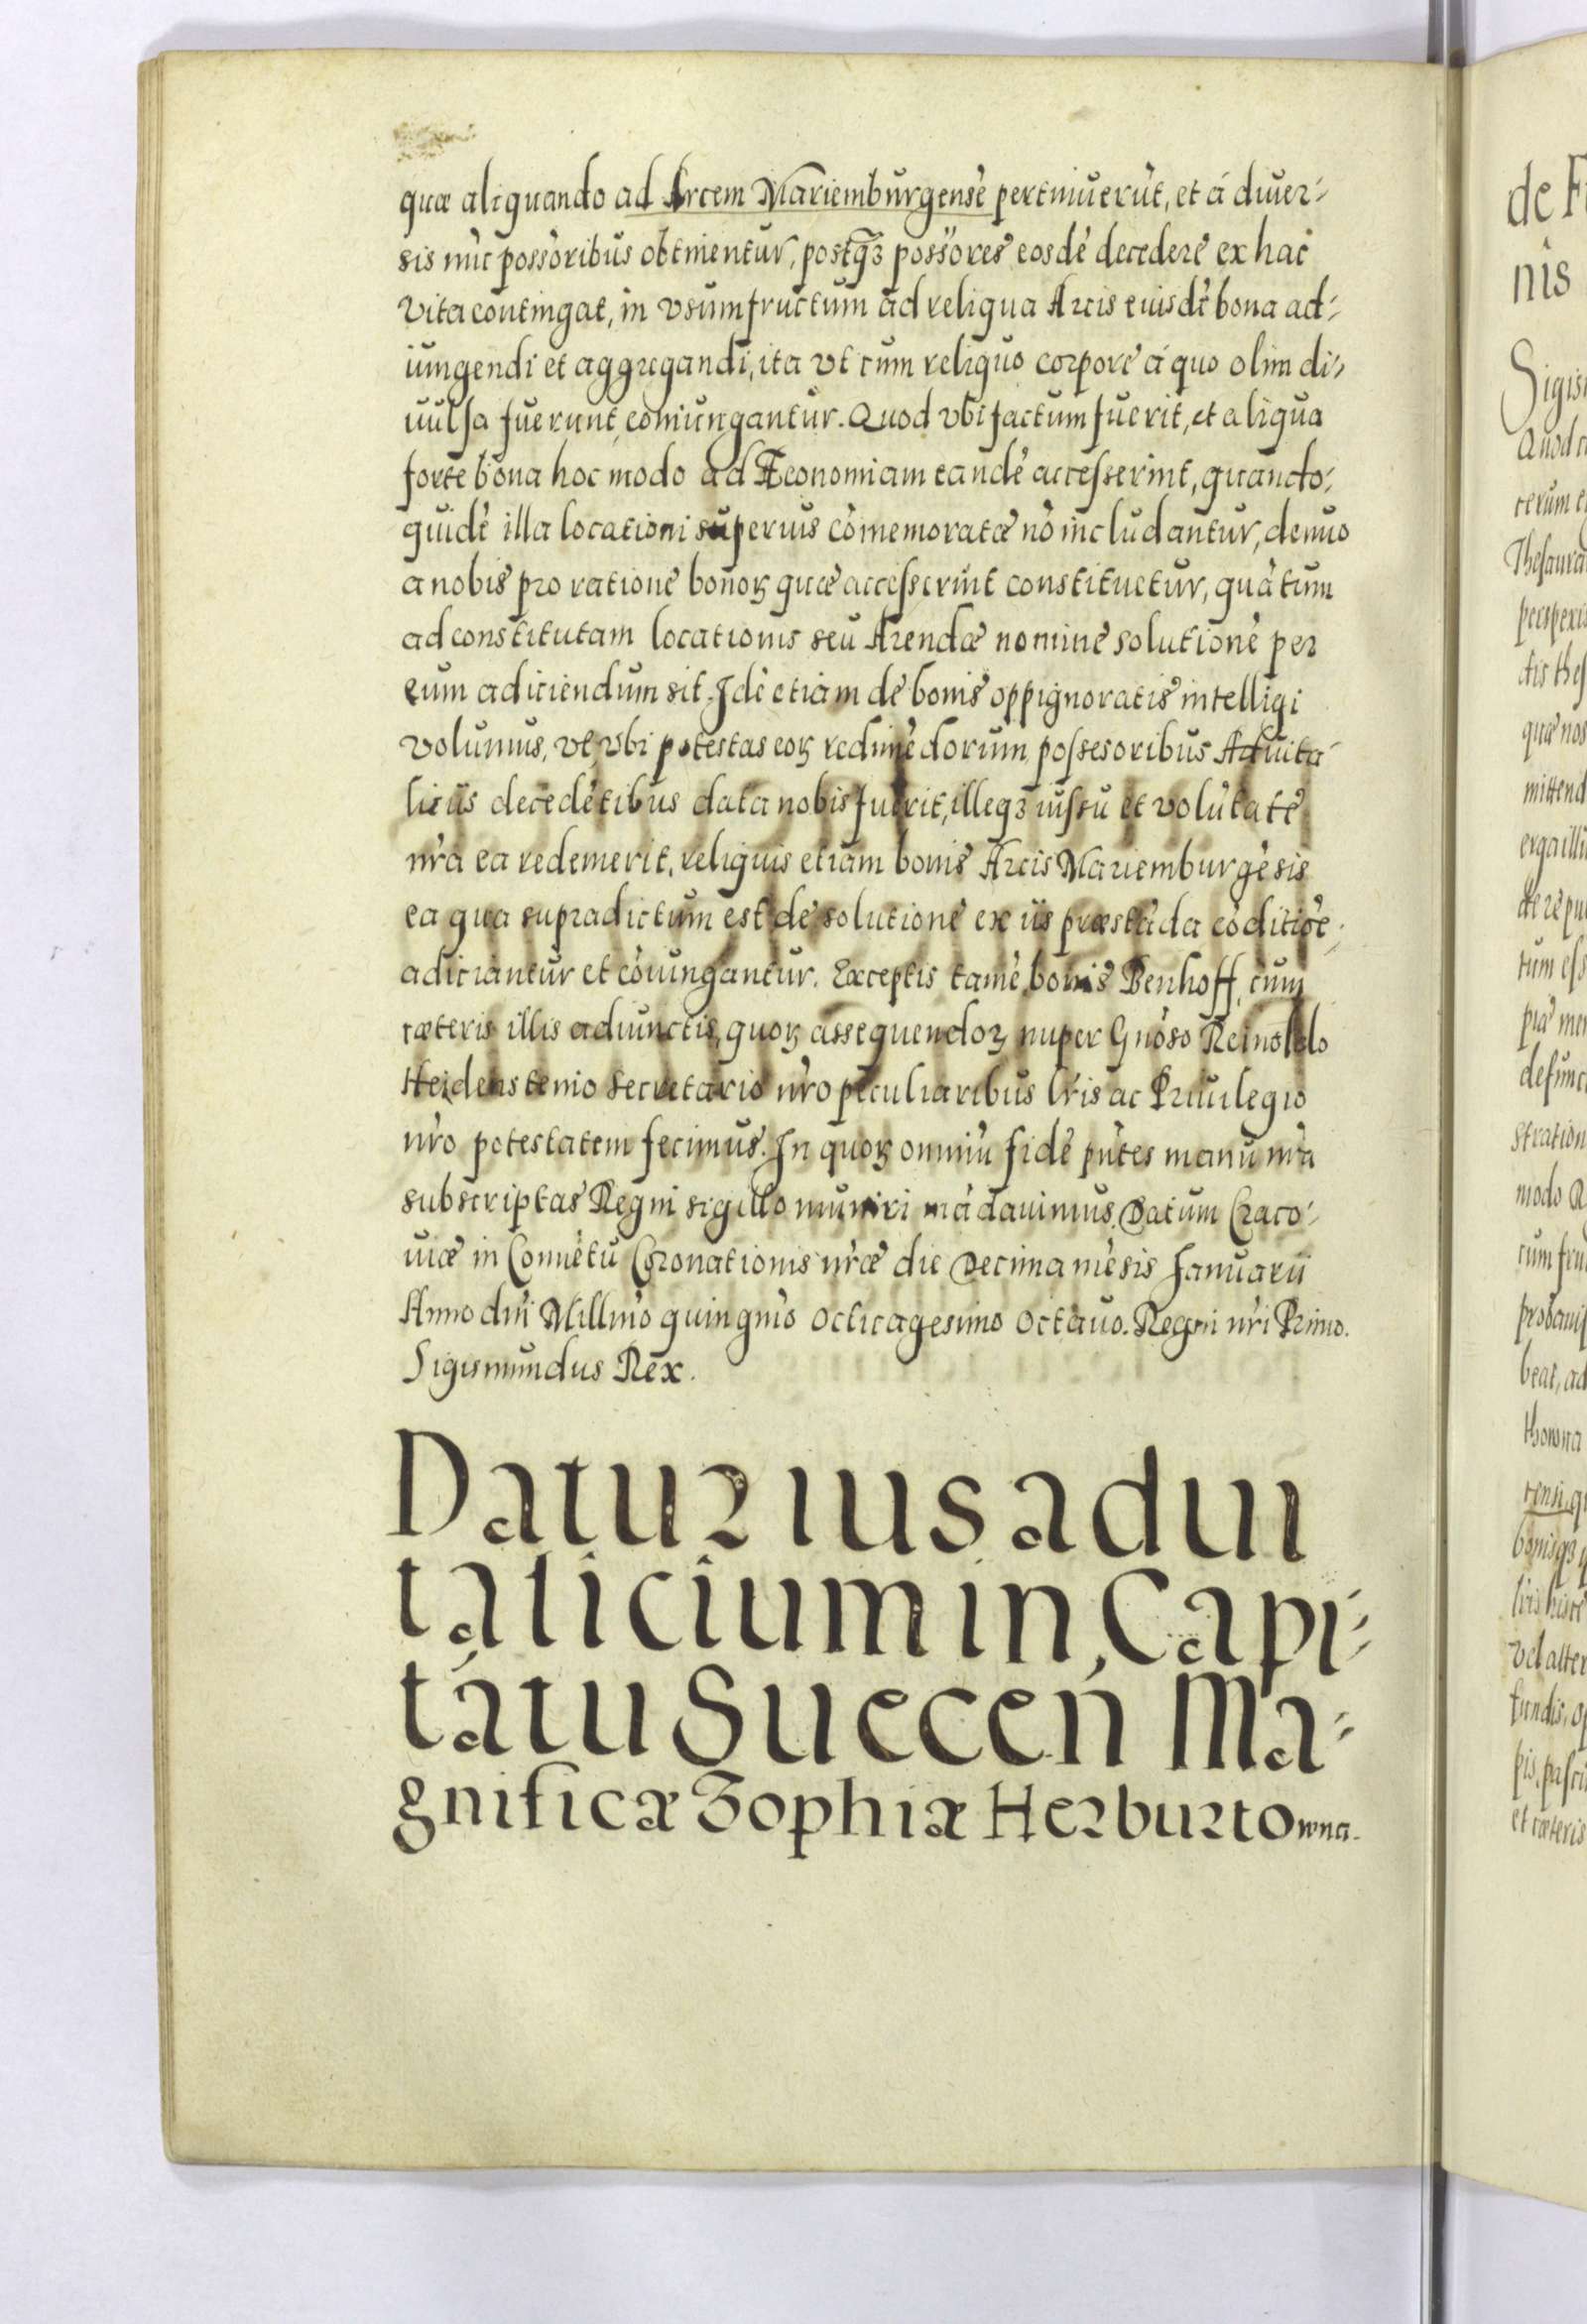 quæ aliquando ad Arcem Mariemburgensẽ pertinuerũt, et á diuer-
sis nũc possoribus obtinentur, postq̃ꝫ possores eosdẽ decedere ex hac
vita contingat, in vsumfructum ad reliqua Arcis eiusdẽ bona ad-
iungendi et aggregandi, ita vt cum reliquo corpore á quo olim di-
uulsa fuerunt, coniungantur. Quod vbi factum fuerit, et aliqua
forte bona hoc modo ad Æconomiam eandẽ accesserint, quando-
quidẽ illa locationi superius cõmemoratæ nõ includantur, denuo
a nobis pro ratione bonoꝝ quæ accesserint constituetur, quãtum
ad constitutam locationis seu Arendæ nomine solutionẽ per
eum adiciendum sit. Idẽ etiam de bonis oppignoratis intelligi
volumus, vt vbi potestas eoꝝ redimẽdorum possesoribus Aduita-
liciis decedẽtibus data nobis fuerit, illeqꝫ iussu et volũtate
nr̃a ea redemerit, reliquis etiam bonis Arcis Mariemburgẽsis
ea qua supradictum est de solutione ex iis præstãda cõditiõe
adiciantur et cõiungantur. Exceptis tamẽ bonis Benhoff, cum
cæteris illis adiunctis, quoꝝ assequendoꝝ nuper Gnõso Reinoldo
Heidenstenio Secretario nr̃o peculiaribus lr̃is ac Priuilegio
nr̃o potestatem fecimus. In quoꝝ omniũ fidẽ pñtes manu nr̃a
subscriptas Regni sigillo muniri mãdauimus. Datum Craco-
uiæ in Conuẽtu Coronationis nr̃æ die Decima mẽsis Januarii
Anno dñi Millmõ quingmõ Octuagesimo Octauo. Regni nr̃i Primo.
Sigismundus Rex.
Datur ius adui
talicium in Capi-
tátu Suecen̄ Ma-
gnificæ Zophiæ Herburtowna.
de
nis